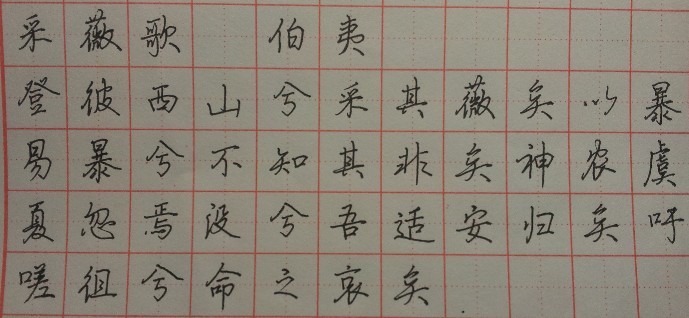 采薇歌 伯夷
登彼西山兮采其薇矣以暴
易暴兮不知其非矣神农虞
夏忽焉没兮吾适安归矣吁
嗟徂兮命之哀矣